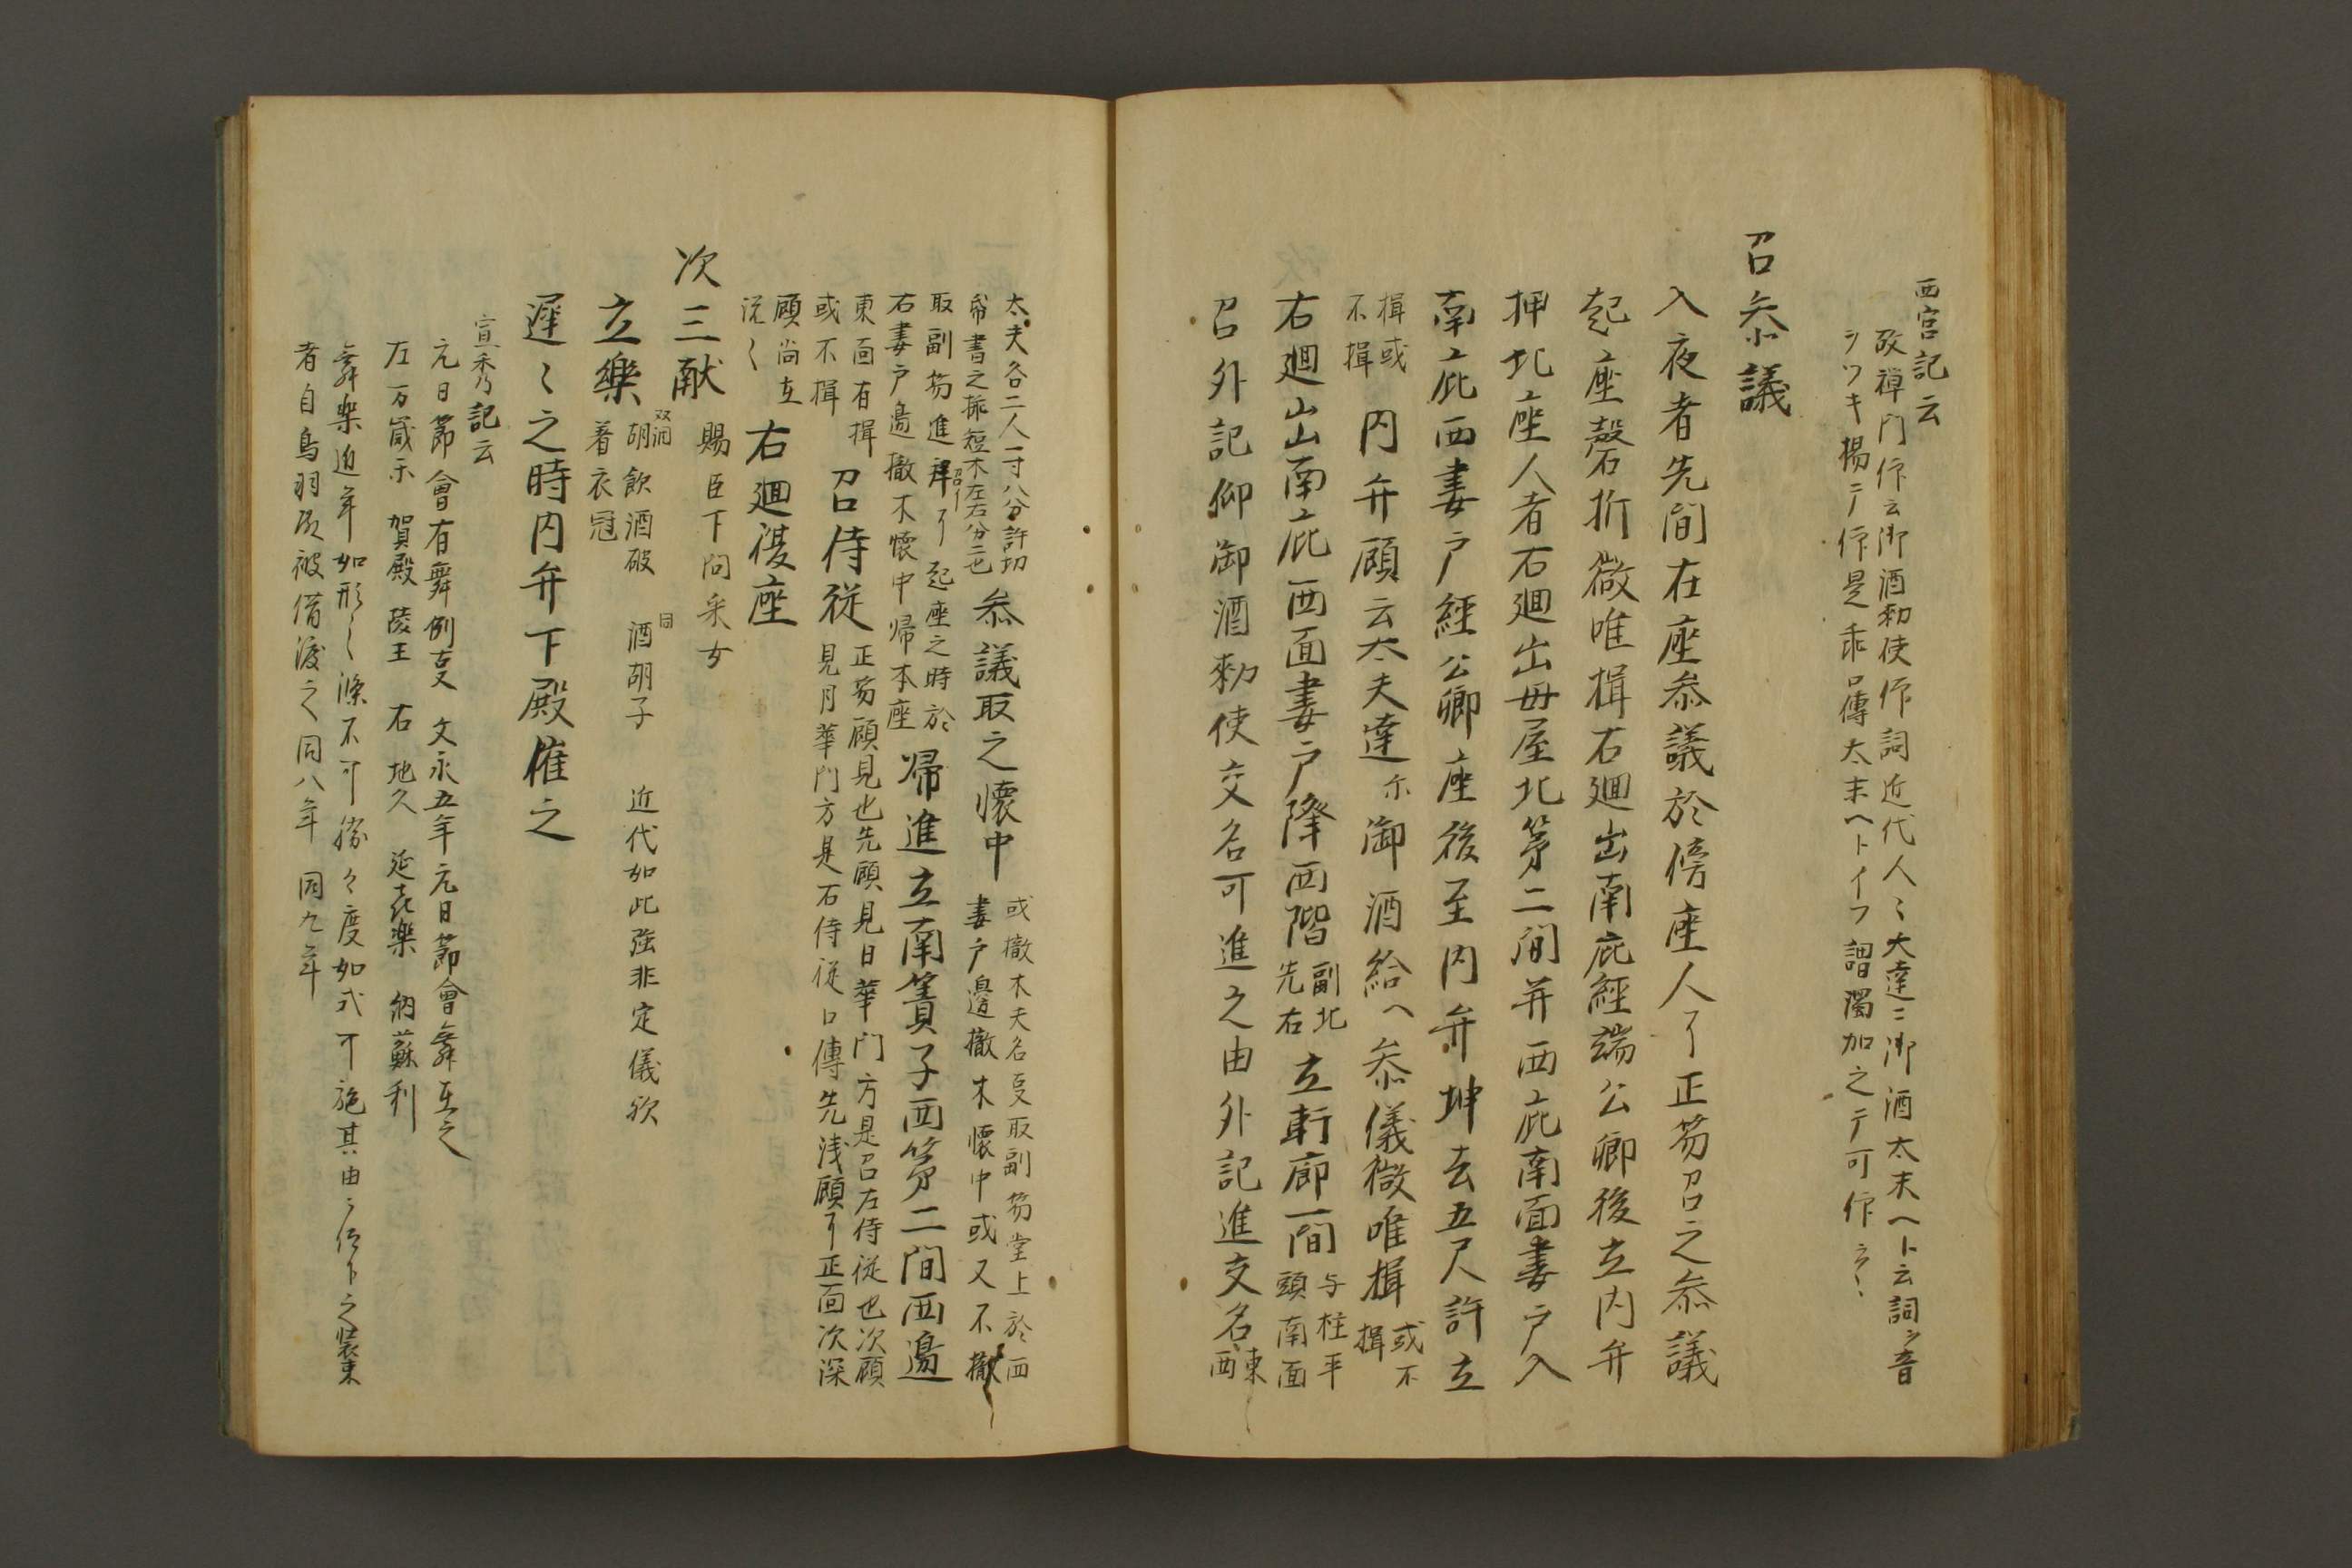 西宮記云
故禅門作云御酒勅使作詞近代人〻大達ニ御酒太末ヘト云詞ヲ音
ヲツキ揚テ作是乖口傳太末ヘトイフ謂濁加之テ可作云〻
召参議
入夜者先間在座参議於傍座人了正笏召之参議
起座磬折微唯揖右廻出南庇経端公卿後立内弁
押北座人者右廻出母屋北第二間并西庇南面妻戸入
南庇西妻戸経公卿座後至内弁坤去五尺許立
揖或
不揖
内弁顧云太夫達尓御酒給ヘ参儀微唯揖
或不
揖
右廻出南庇西面妻戸降西階
副北
先右
立軒廊一間
与柱平
頭南面
召外記仰御酒勅使交名可進之由外記進交名
東
西
太夫各二人一寸八分許切
帋書之挿短木左右分二也
参議取之懐中
或撤木夫名受取副笏堂上於西
妻戸邊撤木懐中或又不撤
取副笏進揖了起座之時於
右妻戸邊撤木懐中帰本座
帰進立南簀子西第二間西邊
東面有揖
或不揖
召侍従
正笏顧見也先顧見日華门方是召左侍従也次顧
見月華门方是右侍従口傳先浅顧了正面次深
顧尚左
説〻
右廻復座
次三献
賜臣下問采女
立樂
胡飲酒破 酒胡子 近代如此強非定儀欤
着衣冠
遅〻之時内弁下殿催之
宣秀記云
元日節會有舞例支 文永五年元日節會舞在之
左 万歳樂 賀殿 陵王 右 地久 延喜樂 納蘇利
舞樂近年如形之條不可然今度如式可施其由被仰下之装束
者自鳥羽殿被借渡之同八年 同九年